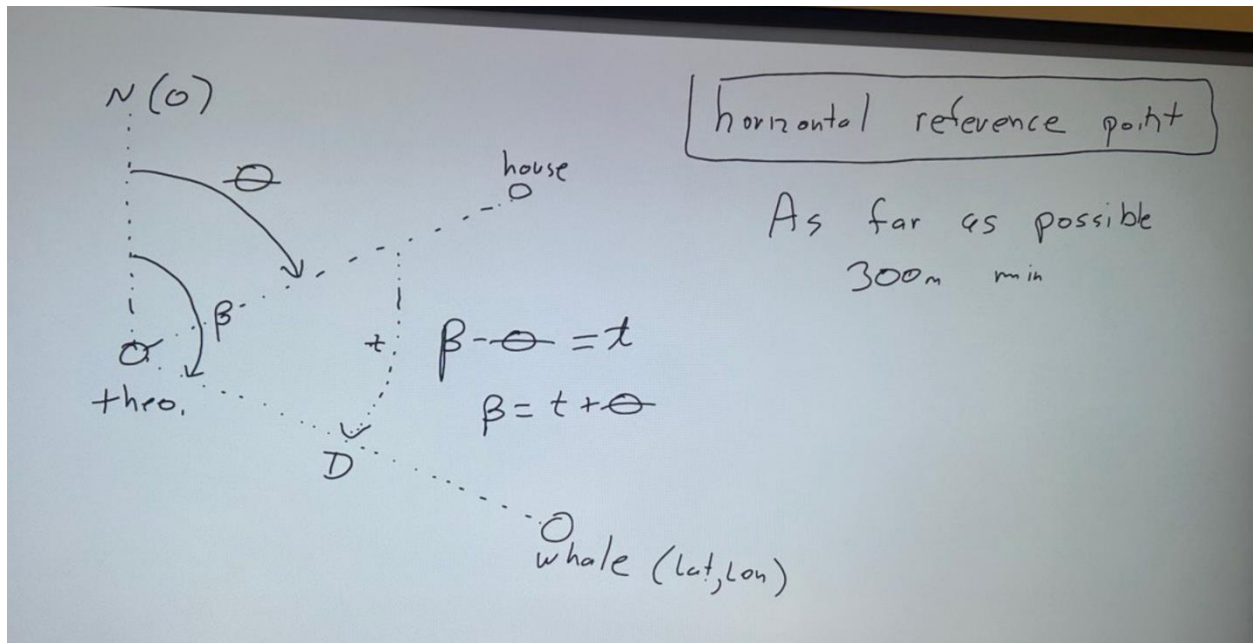 N (0)
θ
house
β
t
theo.
D
β - θ = t
β = t + θ
whale (lat, lon)
horizontal reference point
As far as possible
300m min